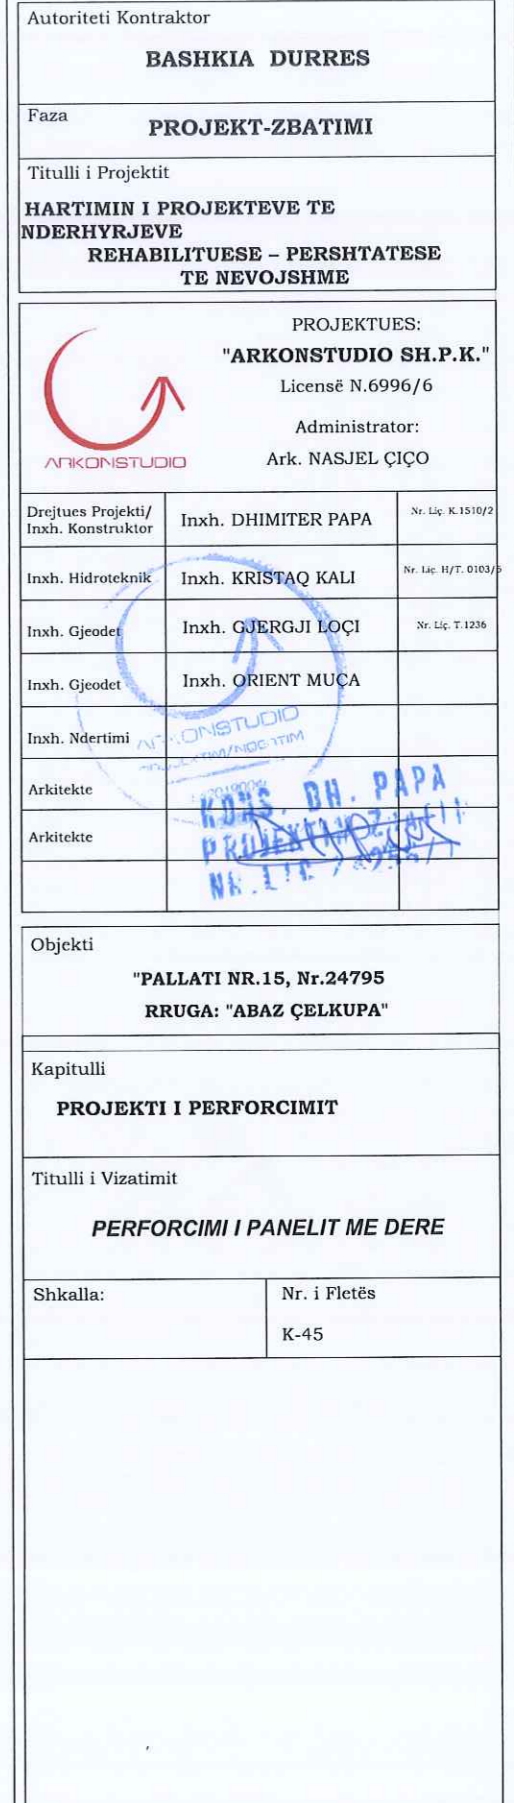 Autoriteti Kontraktor
BASHKIA DURRES
Faza
PROJEKT-ZBATIMI
Titulli i Projektit
HARTIMIN I PROJEKTEVE TE
NDERHYRJEVE
REHABILITUESE – PERSHTATESE
TE NEVOJSHME
PROJEKTUES:
"ARKONSTUDIO SH.P.K."
Licensë N.6996/6
Administrator:
Ark. NASJEL ÇIÇO
ARKONSTUDIO
Drejtues Projekti/
Inxh. Konstruktor
Inxh. DHIMITER PAPA
Nr. Liç. K.1510/2
Inxh. Hidroteknik
Inxh. KRISTAQ KALI
Nr. Liç. H/T. 0103/6
Inxh. Gjeodet
Inxh. GJERGJI LOÇI
Nr. Liç. T.1236
Inxh. Gjeodet
Inxh. ORIENT MUÇA
Inxh. Ndertimi
ARKONSTUDIO
Arkitekte
KONS. DH. PAPA
Arkitekte
NR. LIC
Objekti
"PALLATI NR.15, Nr.24795
RRUGA: "ABAZ ÇELKUPA"
Kapitulli
PROJEKTI I PERFORCIMIT
Titulli i Vizatimit
PERFORCIMI I PANELIT ME DERE
Shkalla:
Nr. i Fletës
K-45